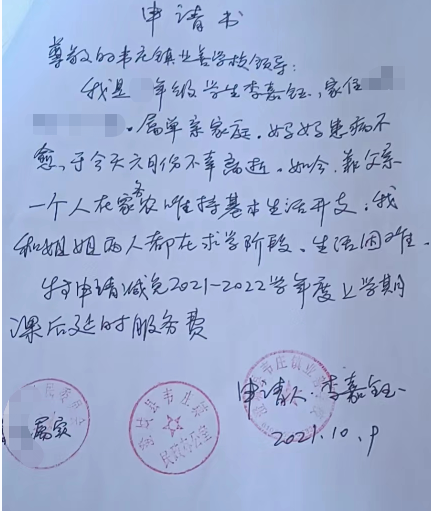 申请书
尊敬的韦庄镇业善学校领导:
我是 年级学生李嘉钰,家住
,属单亲家庭,妈妈患病不
愈,于今天六月份不幸离逝。如今,靠父亲
一个人在家务农维持基本生活开支;我
和姐姐两人都在求学阶段、生活困难。
特申请减免2021-2022学年度上学期
课后延时服务费
申请人:李嘉钰
2021.10.9
属实
县韦庄镇
民政办公室
韦庄镇业